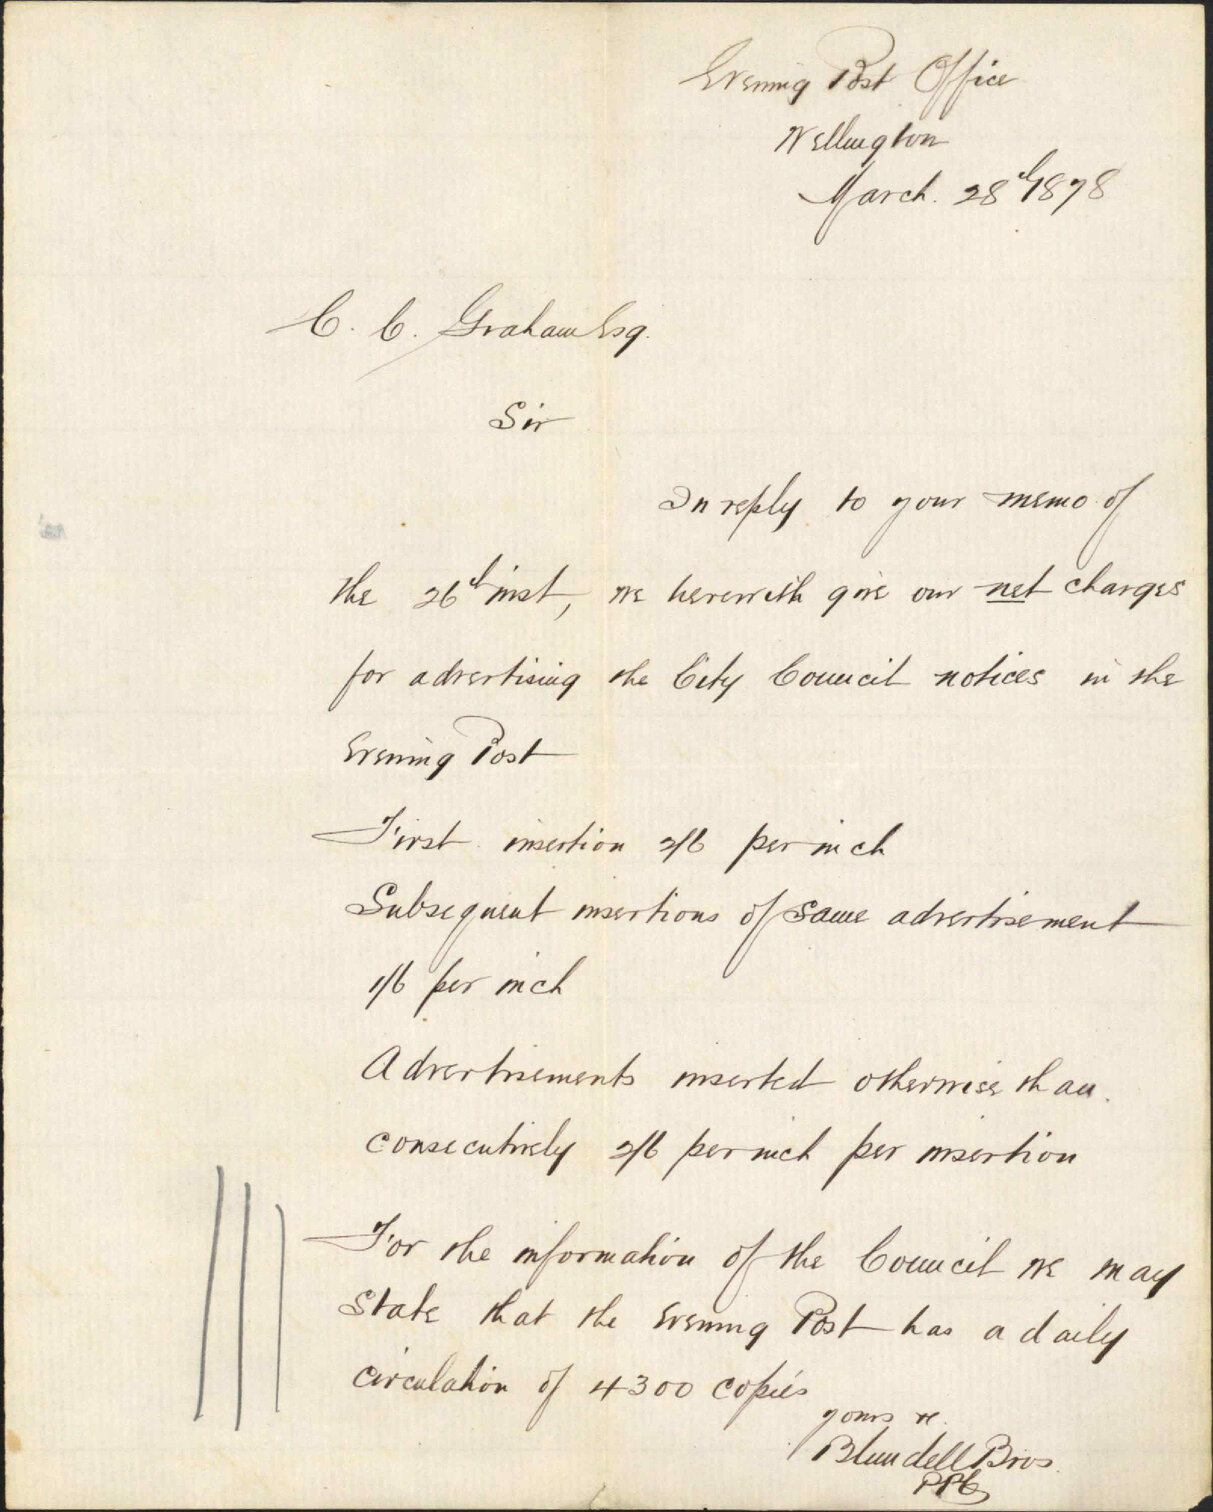 Evening Post Office
Wellington
March. 28th 1878
C. C. Graham Esq.
Sir
In reply to your memo of
the 26th inst, we herewith give our net charges
for advertising the City Council notices in the
Evening Post
First insertion 2/6 per inch
Subsequent insertions of same advertisement
1/6 per inch
Advertisements inserted otherwise than
consecutively 2/6 per inch per insertion
For the information of the Council we may
state that the Evening Post has a daily
circulation of 4300 copies
yours
Blundell Bros.